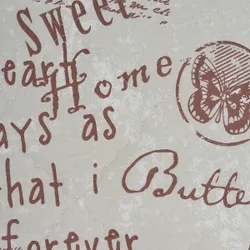 Sweet
ear Home
ays as
that i Butte
forever